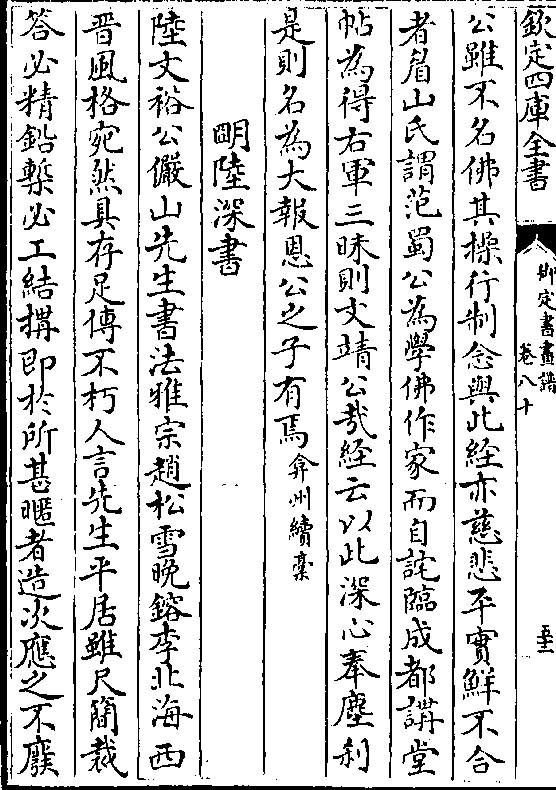 欽定四庫全書
御定書畫譜
卷八十
五十二
公雖不名佛其操行制念與此經亦慈悲平實鮮不合
者眉山氏謂范蜀公為學佛作家而自詫臨成都講堂
帖為得右軍三昧則文靖公哉經云以此深心奉塵刹
是則名為大報恩公之子有焉弇州續藁
明陸深書
陸文裕公儼山先生書法雅宗趙松雪晚鎔李北海西
晉風格宛然具存足傳不朽人言先生平居雖尺簡裁
答必精鉛槧必工結搆即於所甚暱者造次應之不廢